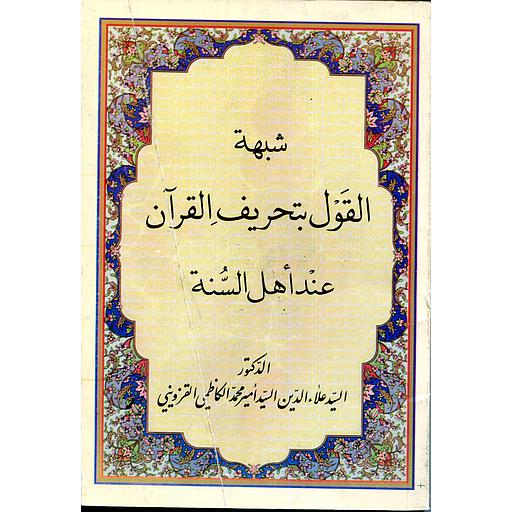 شبهة
القَوْل بتحريفِ القرآن
عنْد أهل السُّنة
الدكتور
السيد علاء الدين السيد أمير محمد الكاظمي القزويني